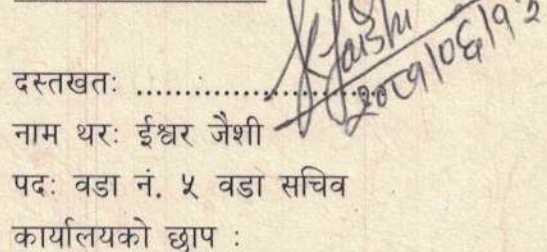 दस्तखतः ........................
२०७१/०६/१२
नाम थरः ईश्वर जैशी
पदः वडा नं. ५ वडा सचिव
कार्यालयको छाप :